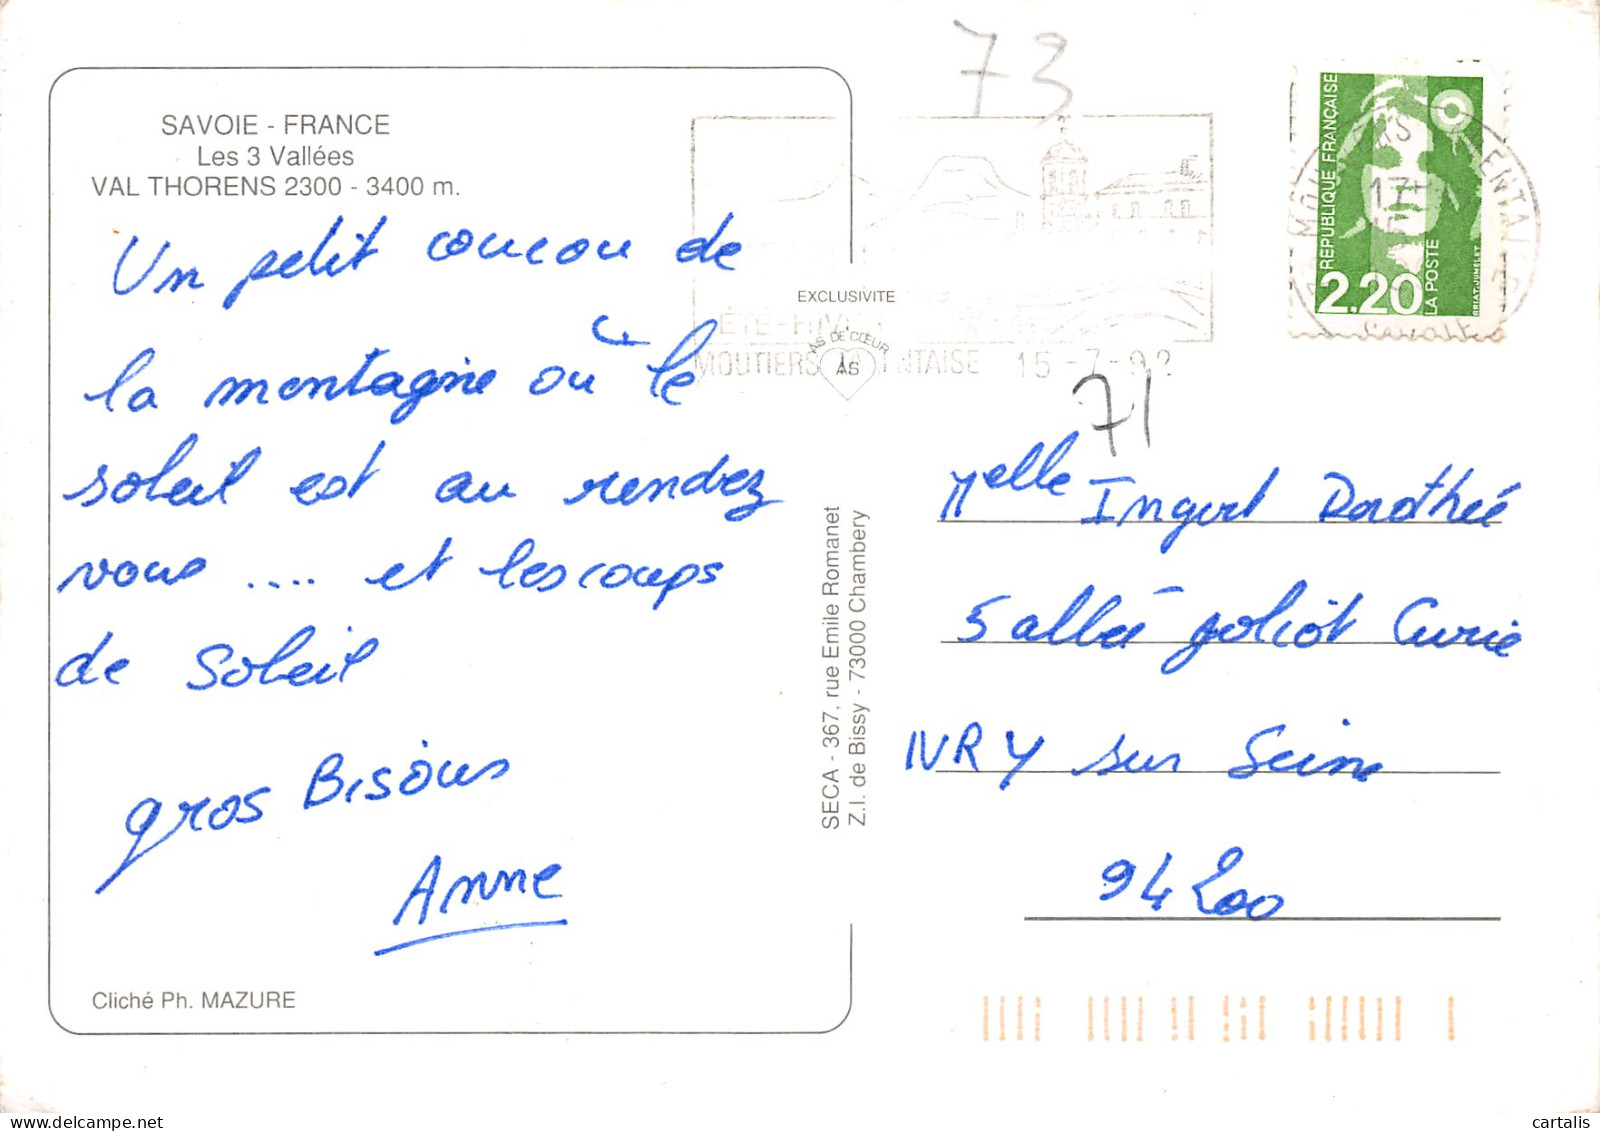 73
SAVOIE - FRANCE
Les 3 Vallées
VAL THORENS 2300 - 3400 m.
Un petit coucou de
la montagne où le
soleil est au rendez
vous .... et les coups
de soleil
gros Bisous
Anne
Cliché Ph. MAZURE
EXCLUSIVITE
AS DE CŒUR
AS
SECA - 367, rue Emile Romanet
Z.I. de Bissy - 73000 Chambery
ÉTÉ-HIVER
MOUTIERS 15-7-92
REPUBLIQUE FRANÇAISE
2.20
LA POSTE
BRIAT-JUMELET
17H
SAVOIE
71
Melle Ingert Dorothée
5 allée joliot Curie
IVRY sur Seine
94200
cartalis